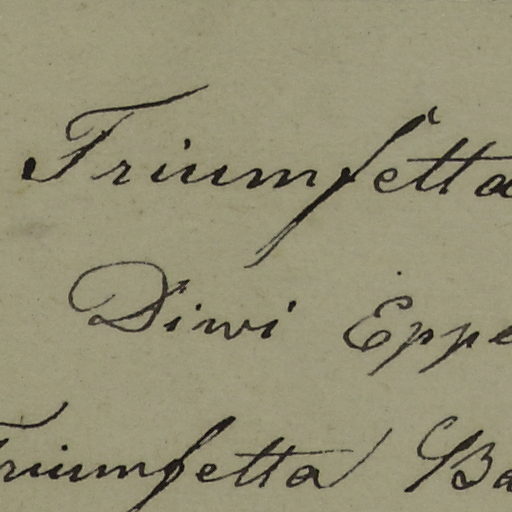 Triumfetta
Diwi Eppe
Triumfetta Ba